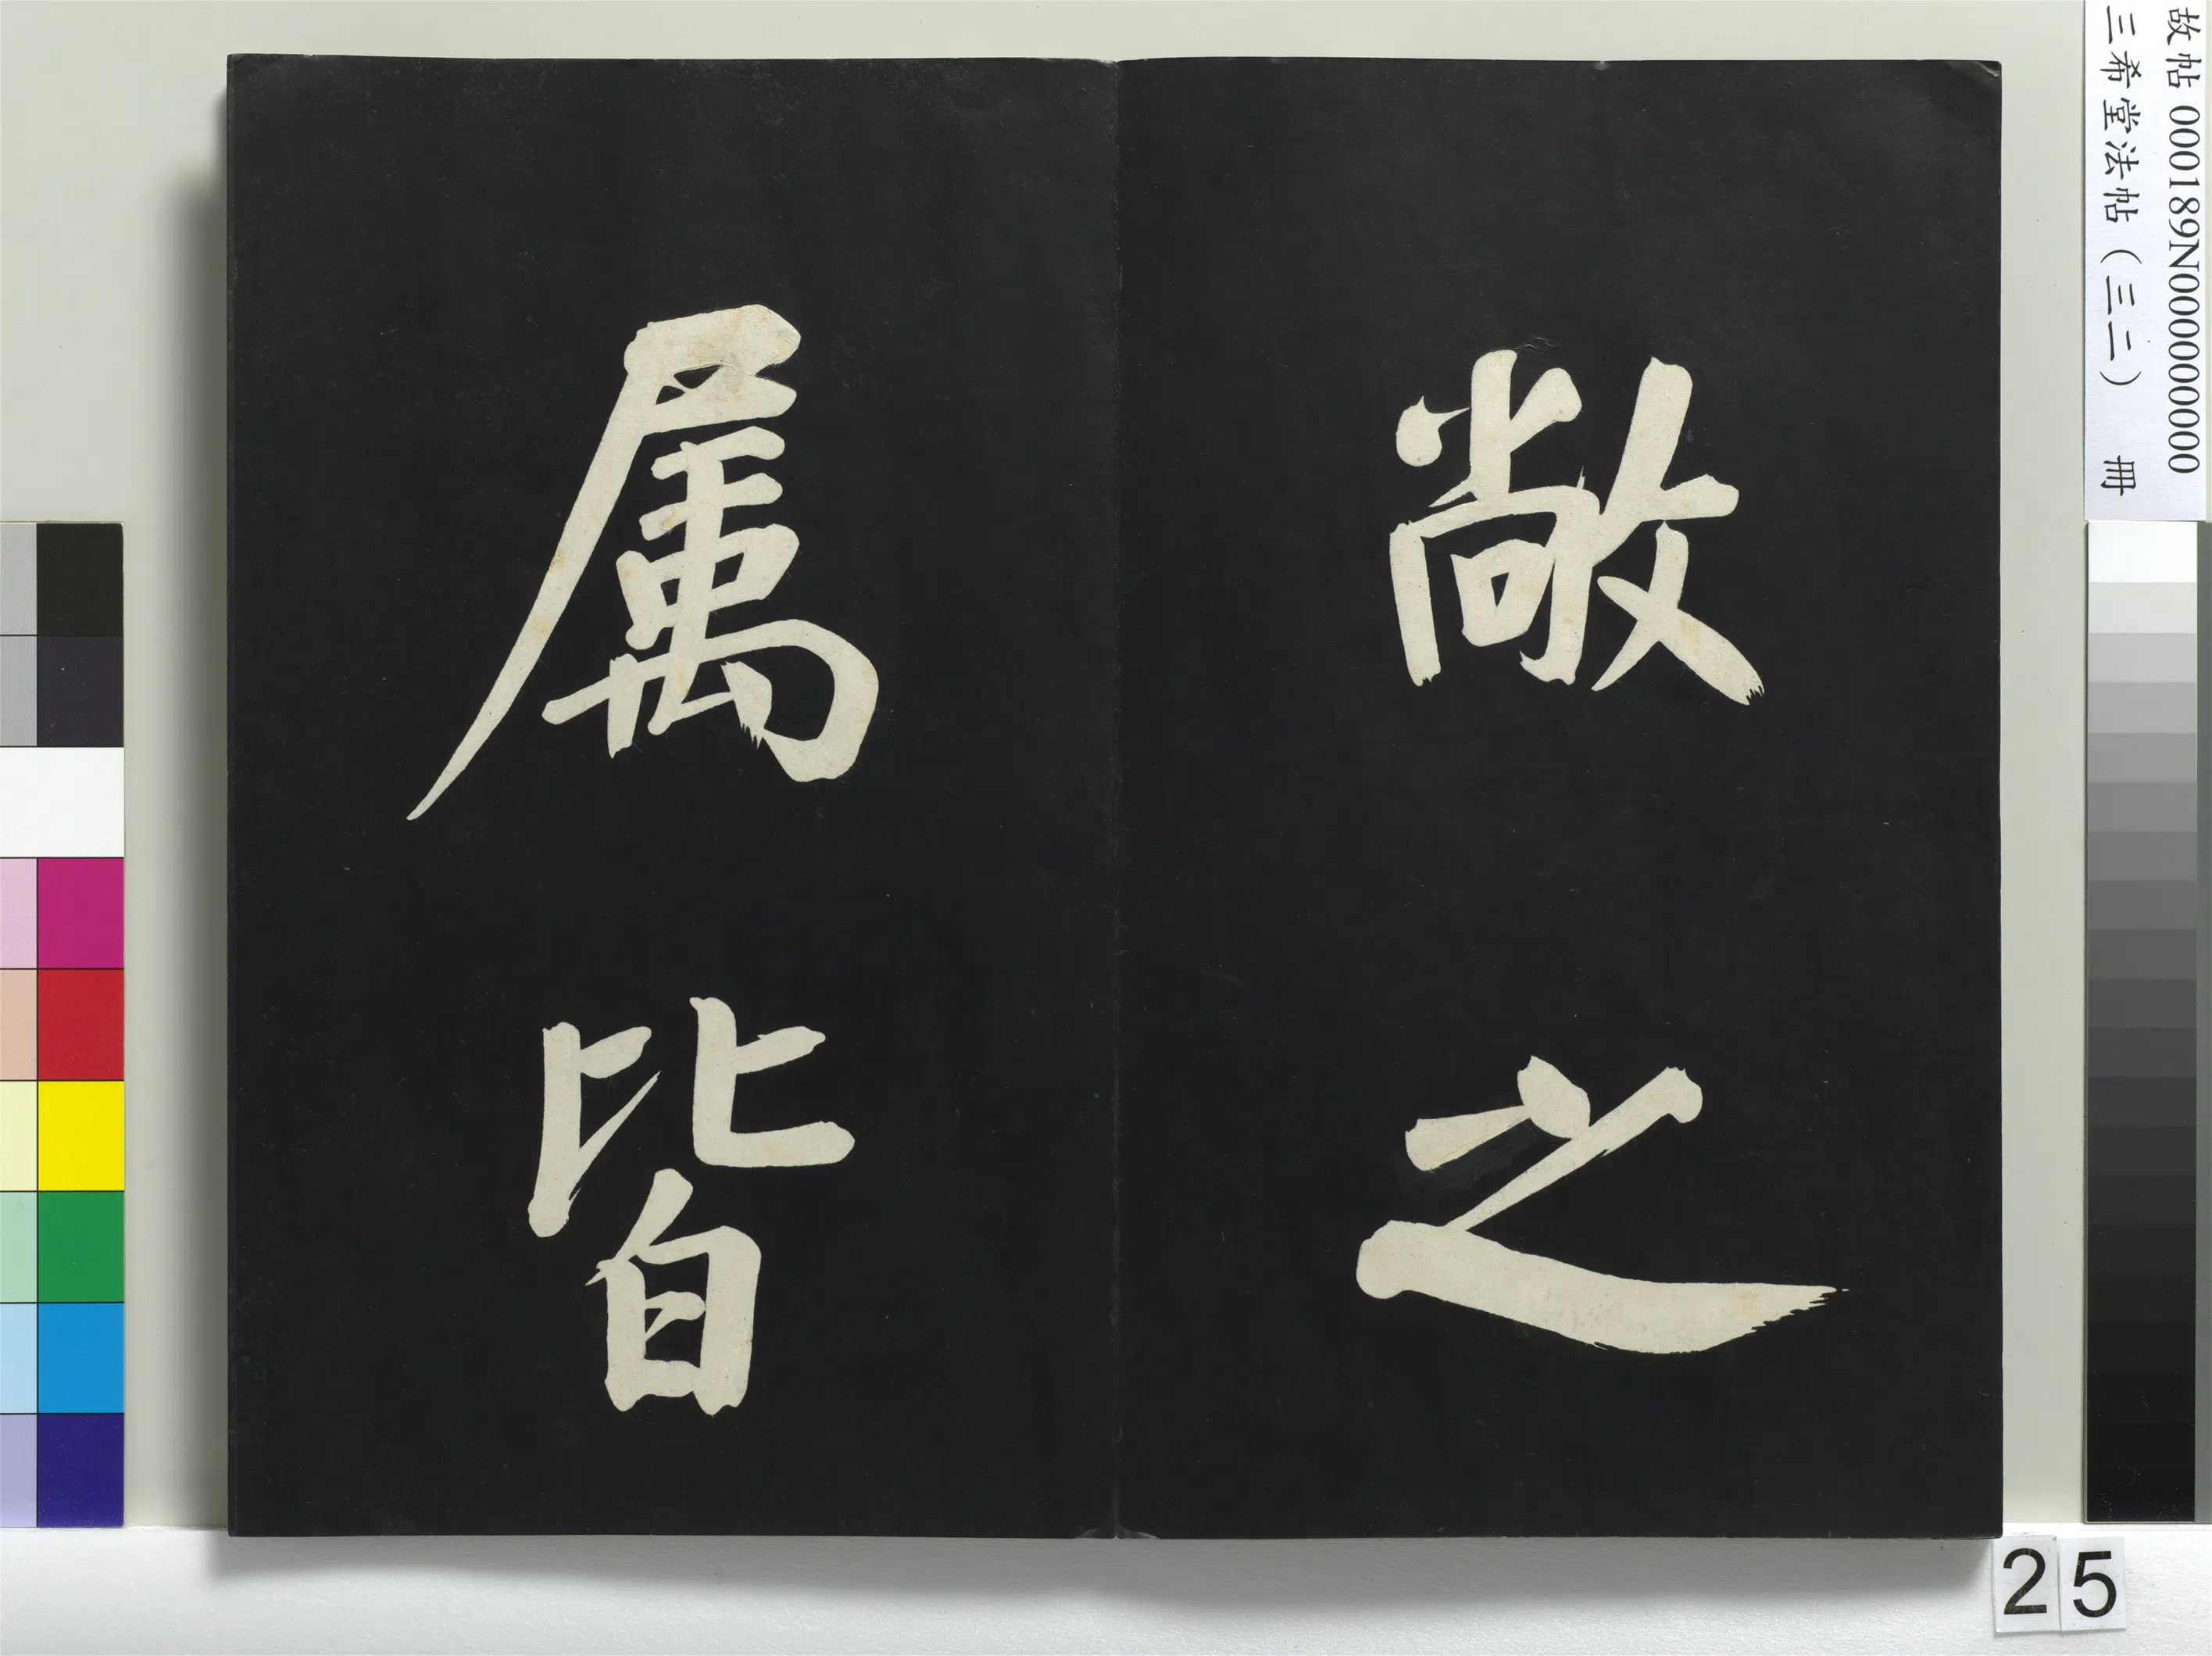 敞之
属皆
故帖 000189N000000000
三希堂法帖（三二） 冊
25